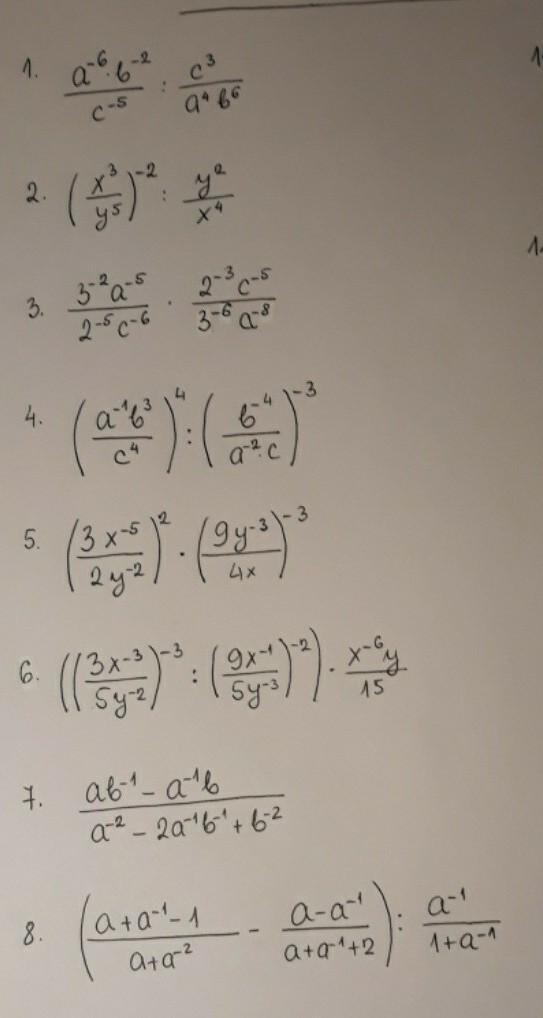 1. \frac{a^{-6} \cdot b^{-2}}{c^{-5}} : \frac{c^3}{a^4 b^6}
1
2. \left(\frac{x^3}{y^5}\right)^{-2} : \frac{y^2}{x^4}
1.
3. \frac{3^{-2} a^{-5}}{2^{-5} c^{-6}} \cdot \frac{2^{-3} c^{-5}}{3^{-6} a^{-8}}
4. \left(\frac{a^{-1} b^3}{c^4}\right)^4 : \left(\frac{b^{-4}}{a^{-2} \cdot c}\right)^{-3}
5. \left(\frac{3x^{-5}}{2y^{-2}}\right)^2 \cdot \left(\frac{9y^{-3}}{4x}\right)^{-3}
6. \left(\left(\frac{3x^{-3}}{5y^{-2}}\right)^{-3} : \left(\frac{9x^{-1}}{5y^{-3}}\right)^{-2}\right) \cdot \frac{x^{-6} y}{15}
7. \frac{ab^{-1} - a^{-1}b}{a^{-2} - 2a^{-1}b^{-1} + b^{-2}}
8. \left(\frac{a + a^{-1} - 1}{a + a^{-2}} - \frac{a - a^{-1}}{a + a^{-1} + 2}\right) : \frac{a^{-1}}{1 + a^{-1}}